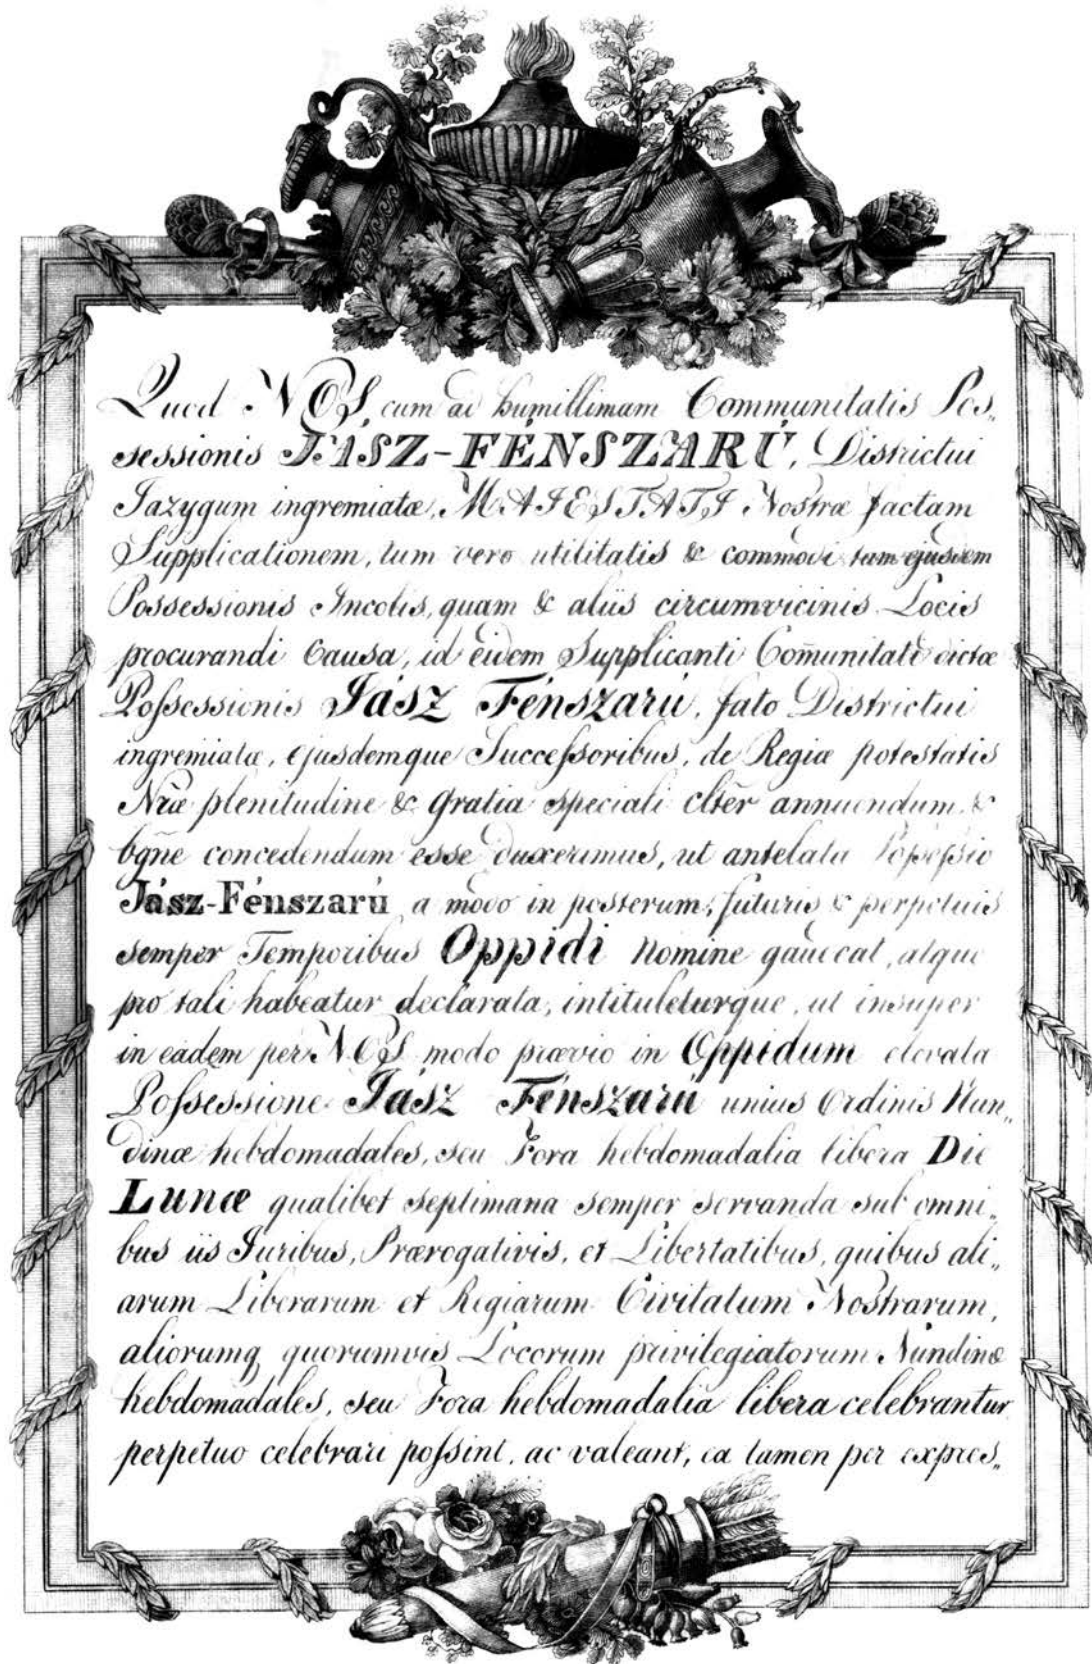 Quod NOS, cum ad humillimam Communitatis Pos„
sessionis JÁSZ-FÉNSZARÚ, Districtui
Jazygum ingremiatæ, MAIESTATI Nostræ factam
Supplicationem, tum vero utilitatis & commodi tam ejusdem
Possessionis Incolis, quam & aliis circumvicinis Locis
procurandi Causa, id eidem Supplicanti Com̄unitati dictæ
Poſsessionis Jász Fénszarú, fato Districtui
ingremiatæ, ejusdemque Succeſsoribus, de Regiæ potestatis
Nræ plenitudine & gratia speciali clter annuendum, &
bgñe concedendum esse duxerimus, ut antelata Poſseſsio
Jász-Fénszarú a modo in posterum, futuris & perpetuis
semper Temporibus Oppidi Nomine gaudeat, atque
pro tali habeatur declarata, intituleturque, ut insuper
in eadem per NOS modo prævio in Oppidum elevata
Poſsessione Jász Fénszarú unius Ordinis Nun„
dinæ hebdomadales, seu Fora hebdomadalia libera Die
Lunæ qualibet septimana semper servanda sub omni„
bus iis Juribus, Prærogativis, et Libertatibus, quibus ali„
arum Liberarum et Regiarum Civitatum Nostrarum,
aliorumq quorumvis Locorum privilegiatorum Nundinæ
hebdomadales, seu Fora hebdomadalia libera celebrantur
perpetuo celebrari poſsint, ac valeant, ea tamen per expres„